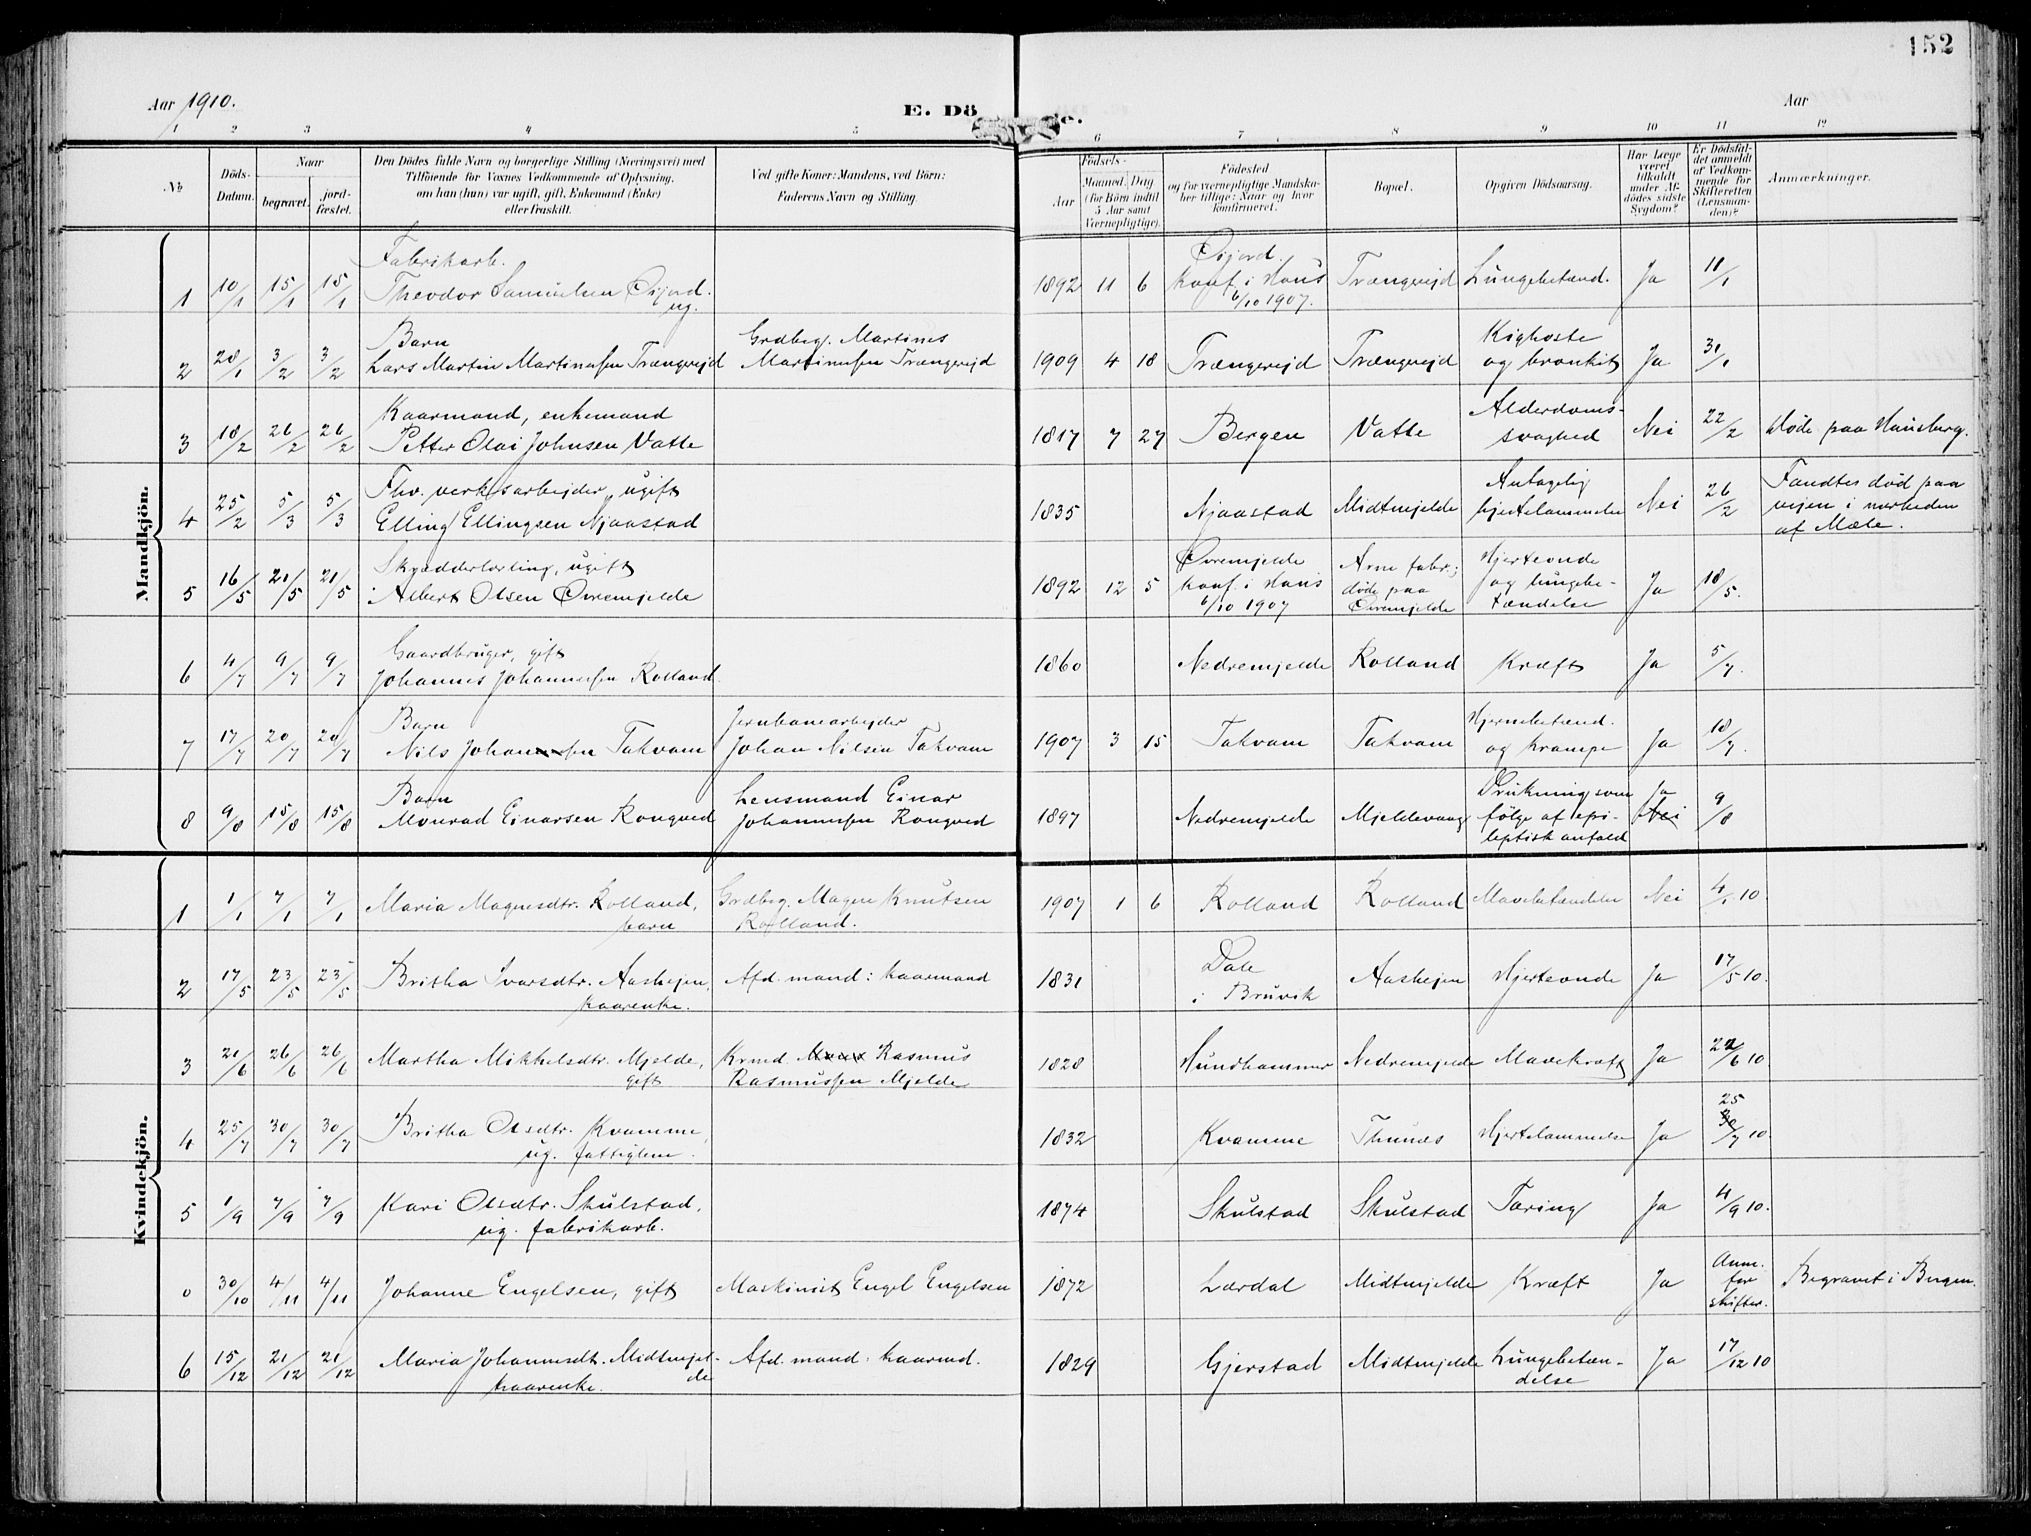 152
Aar 1910.
E. Dö de.
Aar
1 2 3 4 5 6 7 8 9 10 11 12
No
Döds-Datum.
Naar
begravet.
jord-fæstet.
Den Dödes fulde Navn og borgerlige Stilling (Næringsvei) med
Tilföiende for Voxnes Vedkommende af Oplysning,
om han (hun) var ugift, gift, Enkemand (Enke)
eller fraskilt.
Ved gifte Koner: Mandens, ved Börn:
Faderens Navn og Stilling.
Födsels-
Aar
Maaned. Dag
(for Börn indtil
5 Aar samt
Værnepligtige).
Födested
og for værnepligtige Mandska-
ber tillige: Naar og hvor
konfirmeret.
Bopæl.
Opgiven Dödsaarsag.
Har Læge
været
tilkaldt
under Af-
dödes sidste
Sygdom?
Er Dödsfal-
det anmeldt
af Vedkom-
mende for
Skifteretten
(Lensman-
den)?
Anmærkninger.
Mandkjön.
Fabrikarb.
1 10/1 15/1 15/1 Theodor Samuelsen Øijord. ug. 1892 11 6 Øijord. Konf. i Haus 6/10 1907. Trængereid Lungebetænd. Ja 11/1
Barn
2 28/1 3/2 3/2 Lars Martin Martinussen Trængerejd Grdbrg. Martines Martinussen Trængerejd 1909 4 18 Trængerejd Trængerejd Kighoste og bronkit Ja 31/1
Kaarmand, enkemand
3 18/2 26/2 26/2 Petter Olai Johnsen Vatle 1817 7 27 Bergen Vatle Alderdoms-svaghed Nei 22/2 Døde paa Hausberg.
Fhv. verksarbejder, ugift
4 25/2 5/3 5/3 Elling Ellingsen Njaastad 1835 Njaastad Midtmjelde Antagelig hjertelammelse Nei 26/2 Fandtes død paa vejen i nærheden af Mæle.
Skrædderlærling, ugift
5 16/5 21/5 21/5 Albert Olsen Øvremjelde 1892 12 5 Øvremjelde Konf. i Haus 6/10 1907 Arne fabr.; døde paa Øvremjelde Hjerteonde og lungebe-tændelse Ja 18/5.
Gaardbruger, gift
6 4/7 9/7 9/7 Johannes Johannessen Rolland. 1860 Nedremjelde Rolland Kræft Ja 5/7.
Barn
7 17/7 20/7 20/7 Nils Johansen Takvam Jernbanearbejder Johan Nilsen Takvam 1907 3 15 Takvam Takvam Hjernebetænd. og krampe Ja 18/7.
Barn
8 9/8 15/8 15/8 Monrad Einarsen Rongved Lensmand Einar Johannessen Rongved 1897 Nedremjelde Mjeldevaag Drukning som følge af epi-leptisk anfald Ja Nei 9/8
Kvindekjön.
1 1/1 7/1 7/1 Maria Magnesdtr. Rolland, barn Grdbrg. Magne Knutsen Rolland. 1907 1 6 Rolland Rolland Mavebetændelse Nei 4/1 10.
2 17/5 23/5 23/5 Britha Ivarsdtr. Aashejen, kaarenke. Afd. mand: kaarmand 1831 Dale i Bruvik Aashejen Hjerteonde Ja 17/5 10.
3 21/6 26/6 26/6 Martha Mikkelsdtr. Mjelde, gift Krmd. Rasmus Rasmussen Mjelde 1828 Hundhammer Nedremjelde Mavekræft Ja 22/6 10
4 25/7 30/7 30/7 Britha Olsdtr. Kvamme, ug. fattiglem. 1832 Kvamme Thunæs Hjertelammelse Ja 25 30/7 10.
5 1/9 7/9 7/9 Kari Olsdtr. Skulstad, ug. fabrikarb. 1874 Skulstad Skulstad Tæring Ja 4/9 10.
0 30/10 4/11 4/11 Johanne Engelsen, gift Maskinist Engel Engelsen 1872 Lærdal Midtmjelde Kræft Ja Anm. for skifter. Begravet i Bergen.
6 15/12 21/12 21/12 Maria Johannesdt. Midtmjel-de kaarenke. Afd. mand: kaarmd. 1829 Gjerstad Midtmjelde Lungebetæn-delse Ja 17/12 10